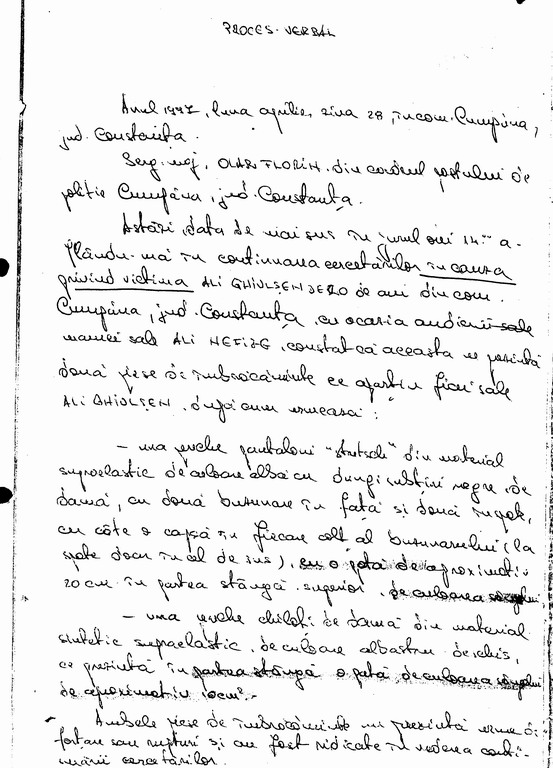 PROCES-VERBAL
Anul 1997, luna aprilie, ziua 28, în com. Cumpăna,
jud. Constanța.
Serg. maj. OLAR FLORIN din cadrul postului de
poliție Cumpăna, jud. Constanța.
Astăzi, data de mai sus în jurul orei 14 a-
flându-mă în continuarea cercetărilor în cauza
privind victima ALI GHIULSEN de ani din com.
Cumpăna, jud. Constanța, cu ocazia audierii sale
mamei sale ALI constat că aceasta ne prezintă
două piese de îmbrăcăminte ce aparțin fiicei sale
ALI GHIULSEN, după cum urmează:
- una pereche pantaloni din material
supraelastic de culoare albă cu dungi subțiri negre, de
damă, cu două buzunare în față și două în spate,
cu câte o capsă în fiecare colț al buzunarului (la
spate doar în cel de sus), cu o pată de aproximativ
20 cm în partea stângă superior, de culoarea sângelui.
- una pereche chiloți de damă din material
sintetic supraelastic, de culoare albastru deschis,
ce prezintă în partea stângă o pată de culoarea sângelui
de aproximativ 10 cm².-
Ambele piese de îmbrăcăminte nu prezintă urme de
forțare sau rupturi și au fost ridicate în vederea conti-
nuării cercetărilor.